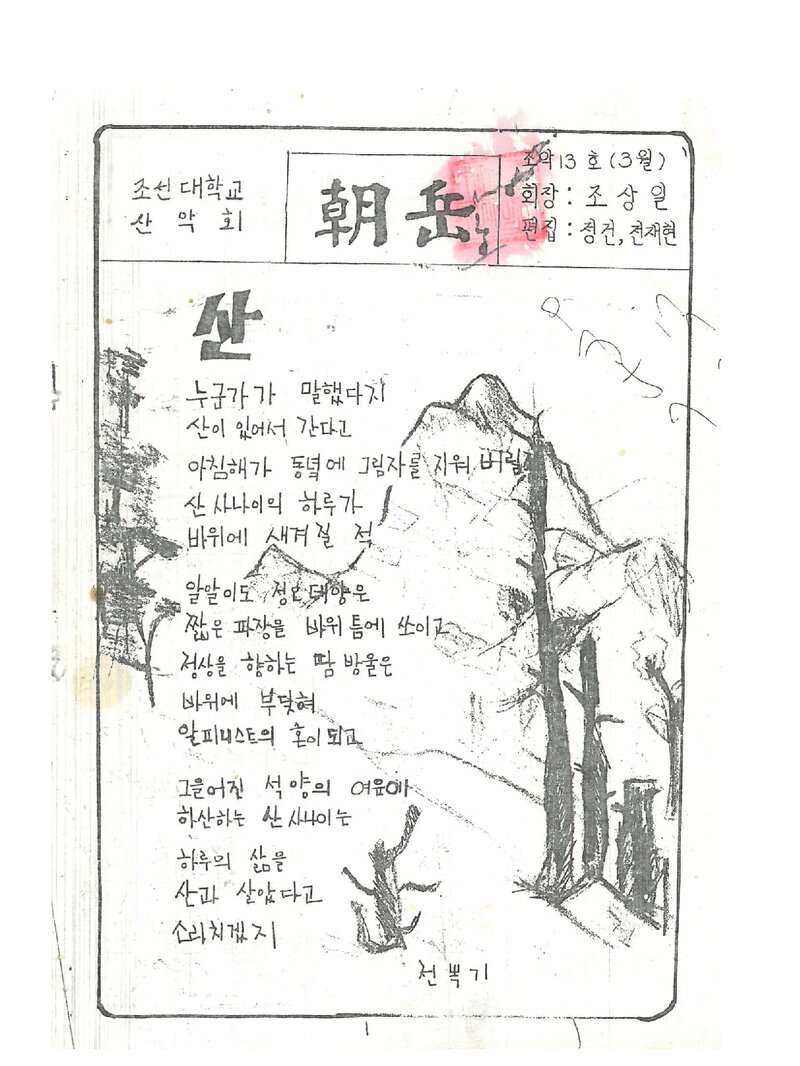 조선대학교
산악회
朝岳
조악13호(3월)
회장 : 조상일
편집 : 정건, 전재현
산
누군가가 말했다지
산이 있어서 간다고
아침해가 동녘에 그림자를 지워 버릴
산사나이의 하루가
바위에 새겨질 적
알알이도 정오 태양은
짧은 파장을 바위 틈에 쏘이고
정상을 향하는 땀방울은
바위에 부딪혀
알피니스트의 혼이 되고
그을어진 석양의 여운에
하산하는 산사나이는
하루의 삶을
산과 살았다고
소리치겠지
천뽁기
1